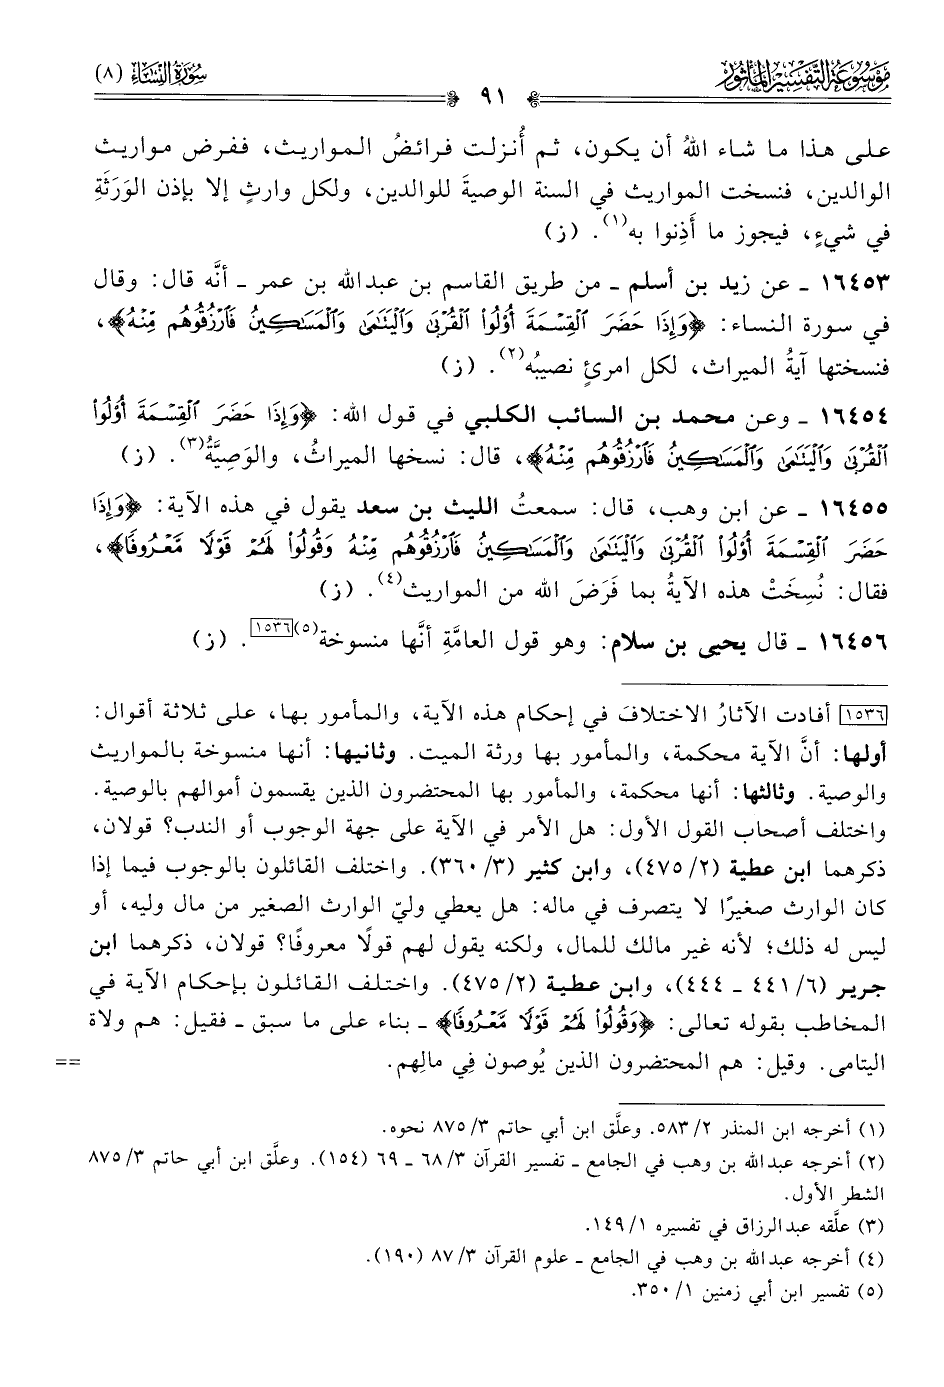 مَوْسُوعَةُ التَّفْسِيرِ المَأْثُورِ
سُورَةُ النِّسَاءِ (٨)
٩١
على هذا ما شاء اللهُ أن يكون، ثم أُنزلت فرائضُ المواريث، ففرض مواريث
الوالدين، فنسخت المواريث في السنة الوصيةَ للوالدين، ولكل وارثٍ إلا بإذن الوَرَثَةِ
في شيءٍ، فيجوز ما أَذِنوا به(١). (ز)
١٦٤٥٣ ـ عن زيد بن أسلم ـ من طريق القاسم بن عبدالله بن عمر ـ أنَّه قال: وقال
في سورة النساء: ﴿وَإِذَا حَضَرَ ٱلْقِسْمَةَ أُوْلُواْ ٱلْقُرْبَىٰ وَٱلْيَتَٰمَىٰ وَٱلْمَسَٰكِينُ فَٱرْزُقُوهُم مِّنْهُ﴾،
فنسختها آيةُ الميراث، لكل امرئٍ نصيبُه(٢). (ز)
١٦٤٥٤ ـ وعن محمد بن السائب الكلبي في قول الله: ﴿وَإِذَا حَضَرَ ٱلْقِسْمَةَ أُوْلُواْ
ٱلْقُرْبَىٰ وَٱلْيَتَٰمَىٰ وَٱلْمَسَٰكِينُ فَٱرْزُقُوهُم مِّنْهُ﴾، قال: نسخها الميراثُ، والوَصِيَّةُ(٣). (ز)
١٦٤٥٥ ـ عن ابن وهب، قال: سمعتُ الليث بن سعد يقول في هذه الآية: ﴿وَإِذَا
حَضَرَ ٱلْقِسْمَةَ أُوْلُواْ ٱلْقُرْبَىٰ وَٱلْيَتَٰمَىٰ وَٱلْمَسَٰكِينُ فَٱرْزُقُوهُم مِّنْهُ وَقُولُواْ لَهُمْ قَوْلًا مَّعْرُوفًا﴾،
فقال: نُسِخَتْ هذه الآيةُ بما فَرَضَ الله من المواريث(٤). (ز)
١٦٤٥٦ ـ قال يحيى بن سلام: وهو قول العامَّةِ أنَّها منسوخة(٥)[١٥٣٦]. (ز)
[١٥٣٦] أفادت الآثارُ الاختلافَ في إحكام هذه الآية، والمأمور بها، على ثلاثة أقوال:
أولها: أنَّ الآية محكمة، والمأمور بها ورثة الميت. وثانيها: أنها منسوخة بالمواريث
والوصية. وثالثها: أنها محكمة، والمأمور بها المحتضرون الذين يقسمون أموالهم بالوصية.
واختلف أصحاب القول الأول: هل الأمر في الآية على جهة الوجوب أو الندب؟ قولان،
ذكرهما ابن عطية (٢/ ٤٧٥)، وابن كثير (٣/ ٣٦٠). واختلف القائلون بالوجوب فيما إذا
كان الوارث صغيرًا لا يتصرف في ماله: هل يعطي وليّ الوارث الصغير من مال وليه، أو
ليس له ذلك؛ لأنه غير مالك للمال، ولكنه يقول لهم قولًا معروفًا؟ قولان، ذكرهما ابن
جرير (٦/ ٤٤١ ـ ٤٤٤)، وابن عطية (٢/ ٤٧٥). واختلف القائلون بإحكام الآية في
المخاطب بقوله تعالى: ﴿وَقُولُواْ لَهُمْ قَوْلًا مَّعْرُوفًا﴾ ـ بناء على ما سبق ـ فقيل: هم ولاة
اليتامى. وقيل: هم المحتضرون الذين يُوصون فِي مالِهم. ==
(١) أخرجه ابن المنذر ٢/ ٥٨٣. وعلَّق ابن أبي حاتم ٣/ ٨٧٥ نحوه.
(٢) أخرجه عبدالله بن وهب في الجامع ـ تفسير القرآن ٣/ ٦٨ ـ ٦٩ (١٥٤). وعلَّق ابن أبي حاتم ٣/ ٨٧٥
الشطر الأول.
(٣) علَّقه عبدالرزاق في تفسيره ١/ ١٤٩.
(٤) أخرجه عبدالله بن وهب في الجامع ـ علوم القرآن ٣/ ٨٧ (١٩٠).
(٥) تفسير ابن أبي زمنين ١/ ٣٥٠.